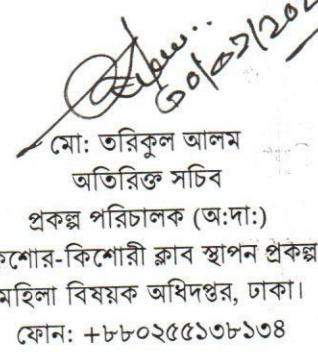 মো: তরিকুল আলম
অতিরিক্ত সচিব
প্রকল্প পরিচালক (অ:দা:)
কিশোর-কিশোরী ক্লাব স্থাপন প্রকল্প
মহিলা বিষয়ক অধিদপ্তর, ঢাকা।
ফোন: +৮৮০২৫৫১৩৮১৩৪